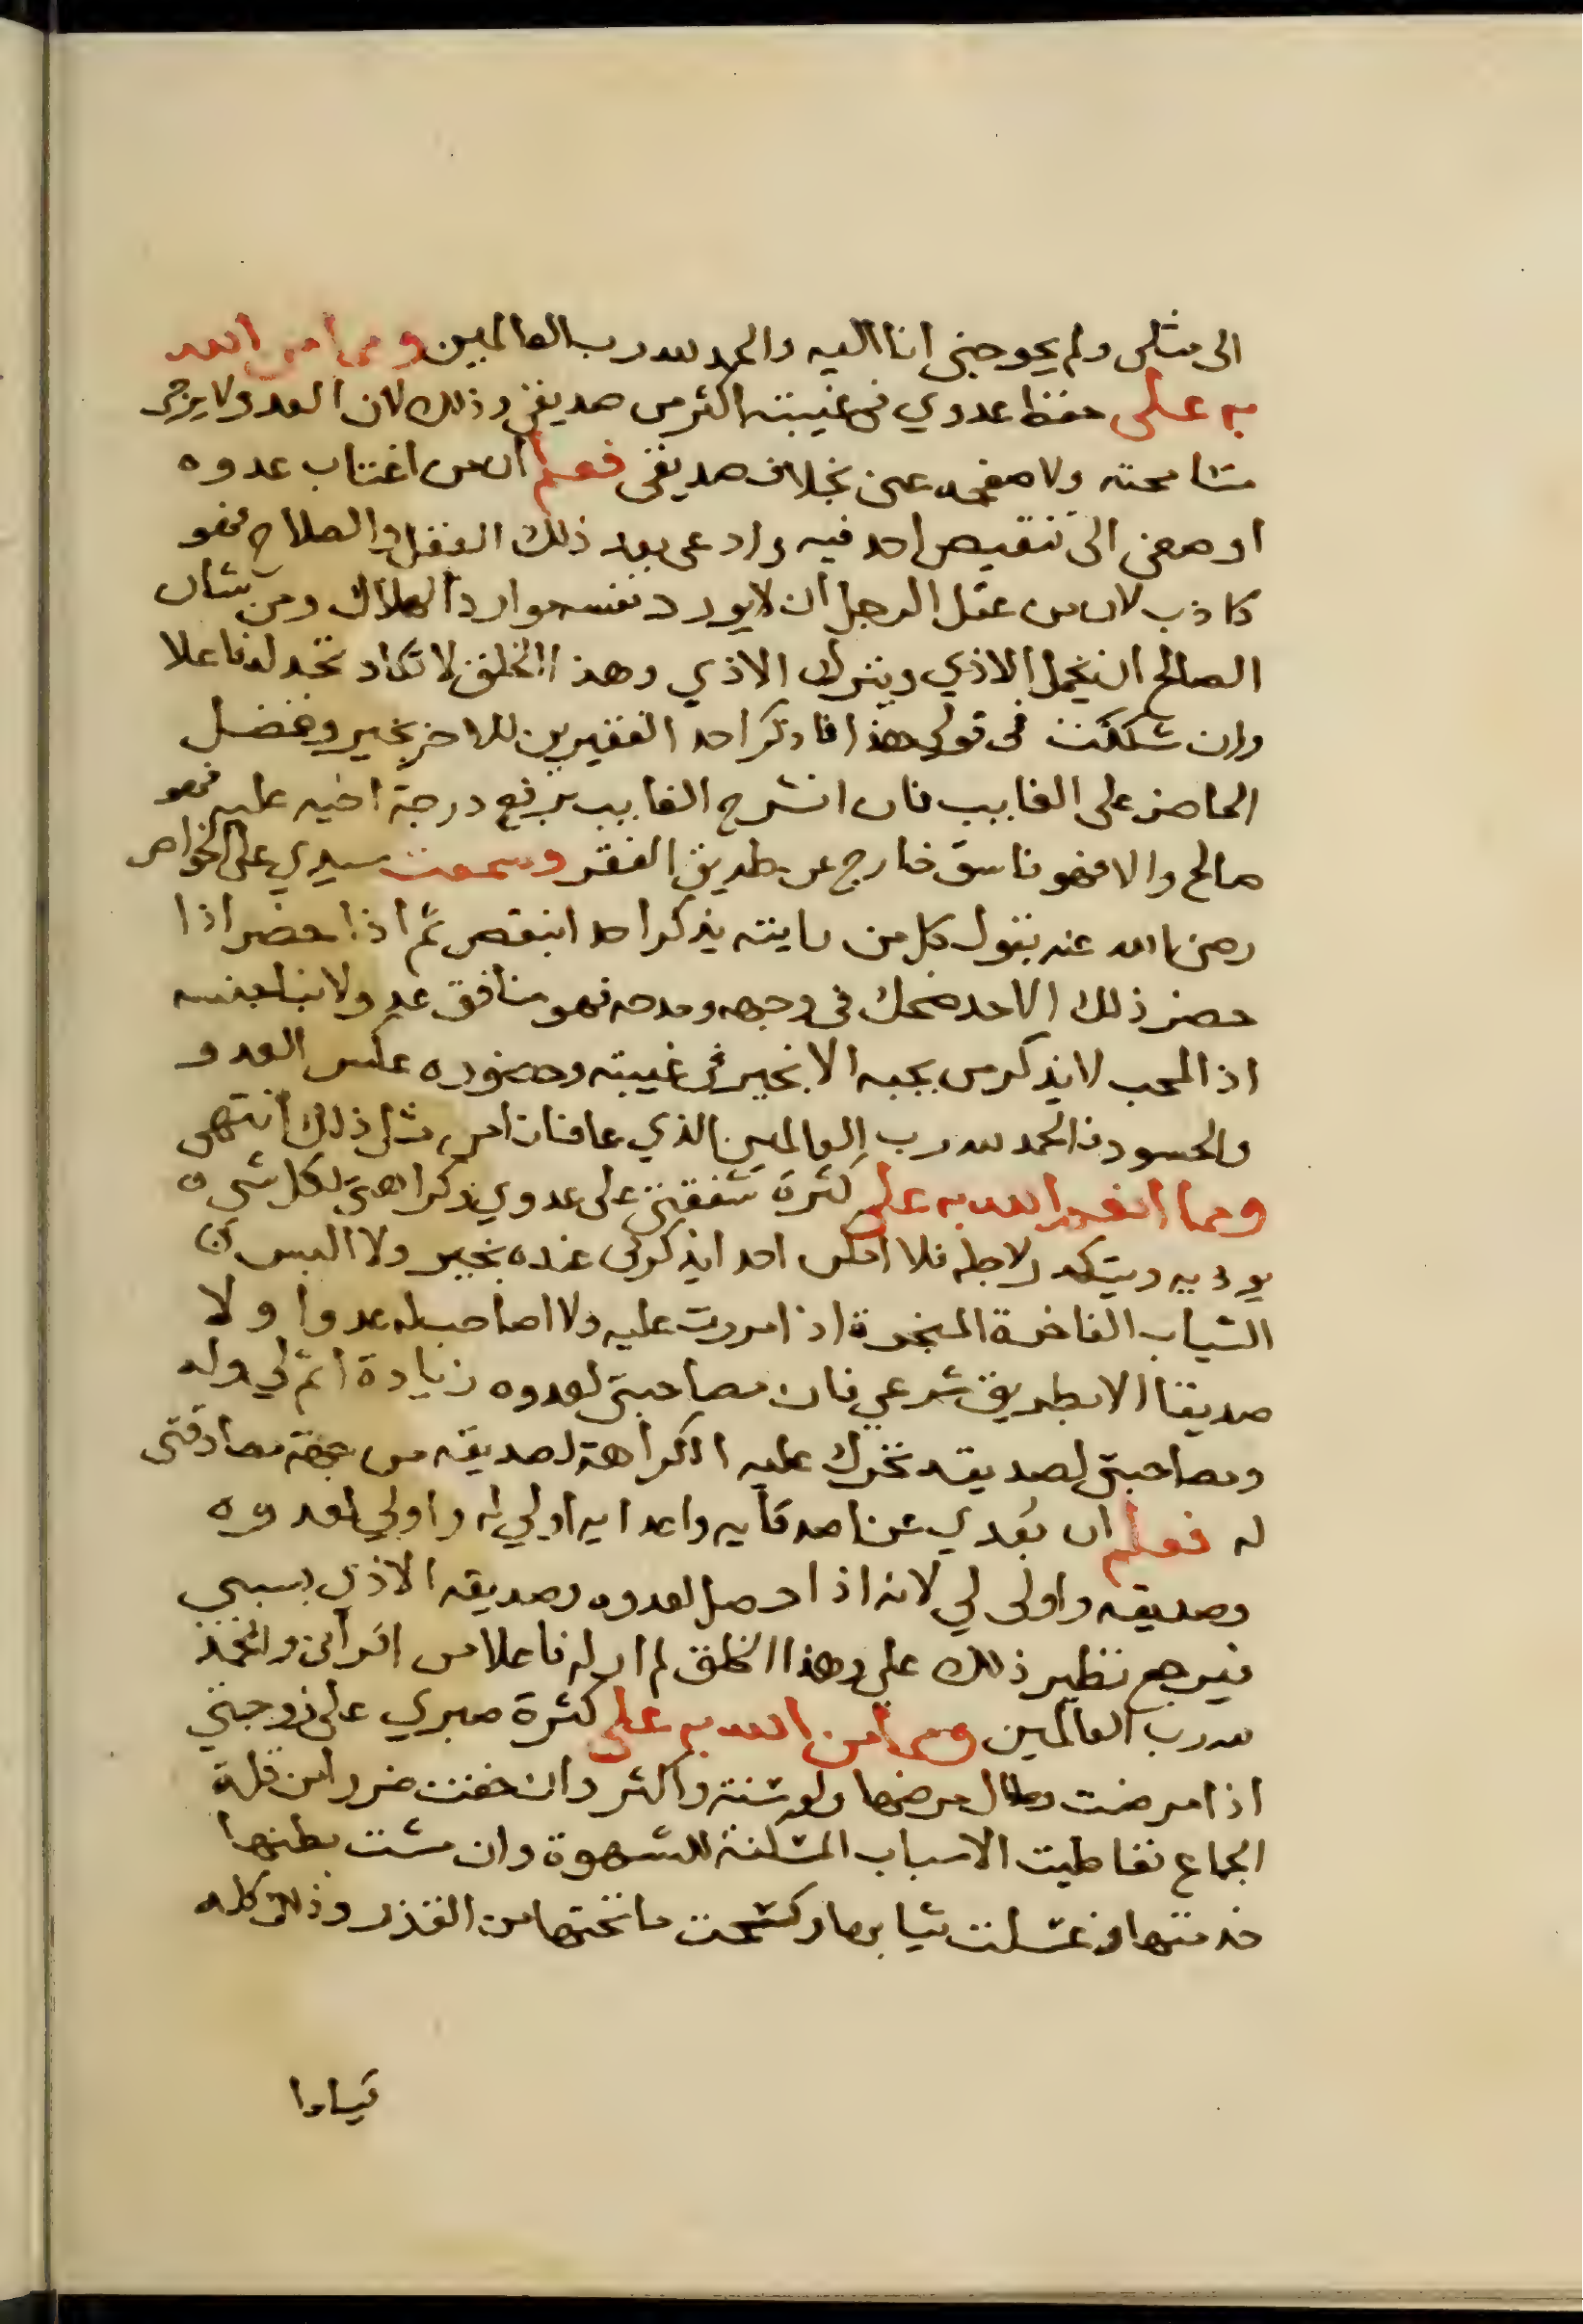 الى مثلى ولم يحوجنى انا اليه والحمد لله رب العالمين ومما من الله
به على حفظ عدوي فى غيبته اكثر من صديقى وذلك لان العدو لا يرجى
مسامحته ولا صفحه عنى بخلاف صديقى فعلم ان من اغتاب عدوه
او صغى الى تنقيص احد فيه وادعى بعد ذلك العقل والصلاح فهو
كاذب لان من عقل الرجل ان لا يورد نفسه موارد الهلاك ومن شان
الصالح ان يتحمل الاذي ويترك الاذي وهذا الخلق لا تكاد تجد له فاعلا
وان شككت فى قولى هذا فاذكر احد الفقيرين للاخر بخير وفضل
الحاضر على الغايب فان انشرح الغايب برفع درجة اخيه عليه فهو
صالح والا فهو فاسق خارج عن طريق الفقر وسمعت سيدي على الخواص
رضى الله عنه يقول كل من رايته يذكر احدا بنقص ثم اذا حضر اذا
حضر ذلك الاحد ضحك فى وجهه ومدحه فهو منافق عدو لا
اذ المحب لا يذكر من يحبه الا بخير فى غيبته وحضوره عكس العدو
والحسود فالحمد لله رب العالمين الذي عافانا من مثل ذلك انتهى
ومما انعم الله به على كثرة شفقتى على عدوي بكراهتى لكل شي
يوذيه ويتكدر لاجله فلا امكن احدا يذكرنى عنده بخير ولا البس
الثياب الفاخرة المبخرة اذا مررت عليه ولا اصاحب له عدوا ولا
صديقا الا بطريق شرعي فان مصاحبتى لعدوه زيادة اثم لي وله
ومصاحبتى لصديقه تحرك عليه الكراهة لصديقه من جهة مصادقتى
له فعلم ان بعدي عن اصدقايه واعدايه اولي له واولي لعدوه
وصديقه واولى لي لانه اذا حصل لعدوه وصديقه الاذي بسببي
فيرجع نظير ذلك على وهذا الخلق لم ار له فاعلا من اقرانى والحمد
لله رب العالمين ومما من الله به على كثرة صبري على زوجتي
اذا مرضت وطال مرضها ولو سنة واكثر وان خفت ضررا من قلة
الجماع تعاطيت الاسباب المسكنة للشهوة وان مشت بطنها
خدمتها وغسلت ثيابها وكسحت ما تحتها من القذر وذلك كله